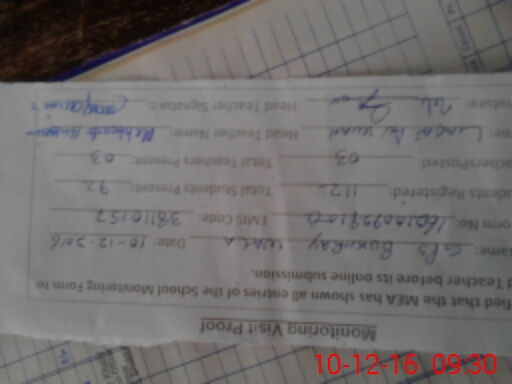 Monitoring Visit Proof
fied that the MEA has shown all entries of the School Monitoring Form to
d Teacher before its online submission.
Name: GPS BUKURAY WALA Date: 10-12-2016
Form No: EMIS Code: 38110157
dents Registered: 112 Total Students Present: 92
eachersPosted 03 Total Teachers Present 03
Head Teacher Name:
nature: Head Teacher Signature:
10-12-16 09:30